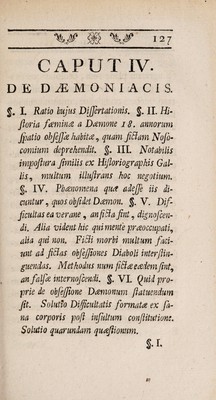 127
CAPUT IV.
DE DÆMONIACIS.
§. I. Ratio hujus Dissertationis. §. II. Hi-
storia fæminæ a Dæmone 18. annorum
spatio obsessæ habitæ, quam fictam Noso-
comium deprehendit. §. III. Notabilis
impostura similis ex Historiographis Gal-
lis, multum illustrans hoc negotium.
§. IV. Phænomena quæ adesse iis di-
cuntur, quos obsidet Dæmon. §. V. Dif-
ficultas ea verane, an ficta sint, dignoscen-
di. Alia vident hic qui mente præoccupati,
alia qui non. Ficti morbi multum faci-
unt ad fictas obsessiones Diaboli interstin-
guendas. Methodus num fictæ eædem sint,
an falsæ internoscendi. §. VI. Quid pro-
prie de obsessione Dæmonum statuendum
sit. Solutio Difficultatis formatæ ex sa-
na corporis post insultum constitutione.
Solutio quarundam quæstionum.
§. I.